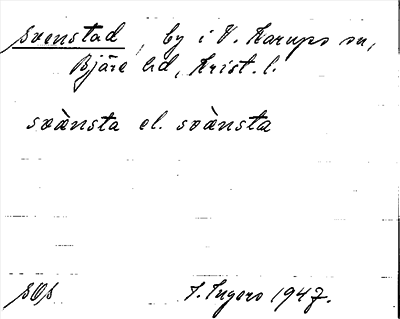 Svenstad, by i V. Karups sn,
Bjäre hd, Krist. l.
svànsta el. svànsta
SOS
I. Ingers 1947.